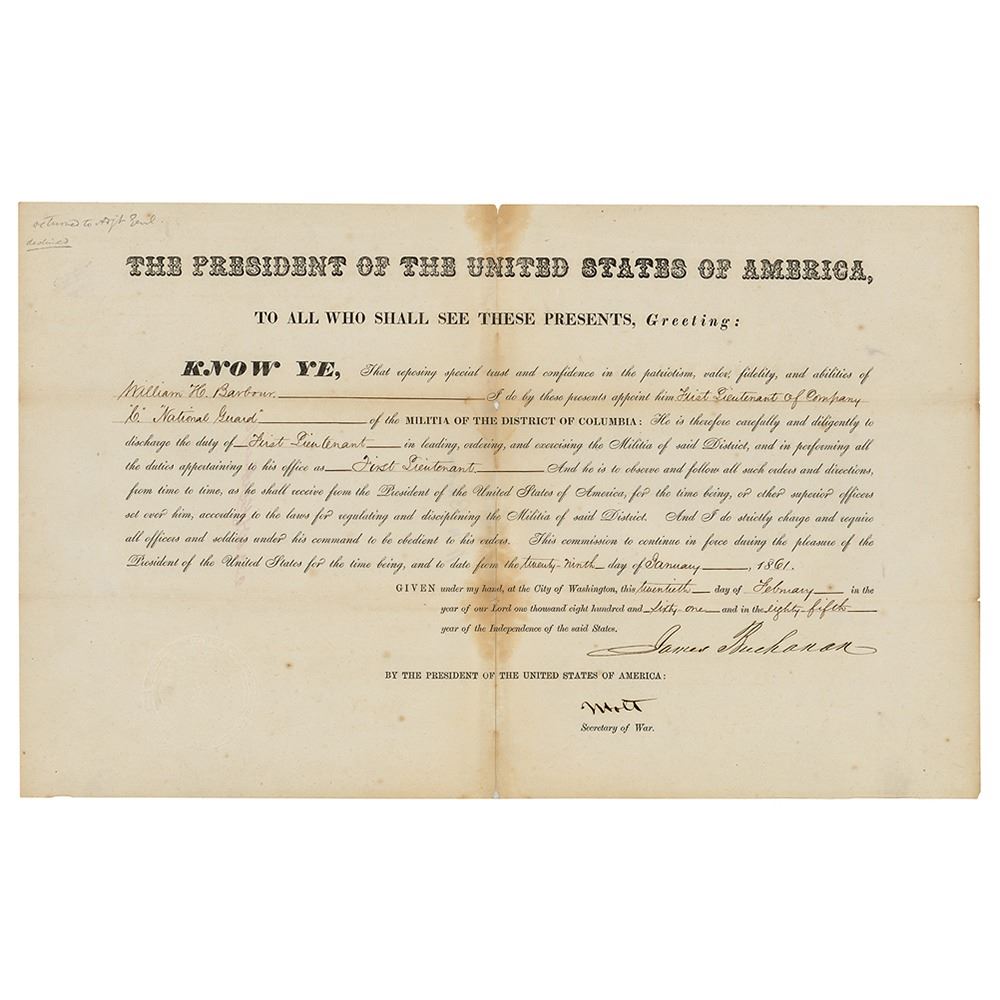 returned to Adjt Genl.
declined
THE PRESIDENT OF THE UNITED STATES OF AMERICA,
TO ALL WHO SHALL SEE THESE PRESENTS, Greeting:
KNOW YE, That reposing special trust and confidence in the patriotism, valor, fidelity, and abilities of
William H. Barbour I do by these presents appoint him First Lieutenant of Company
"National Guard" of the MILITIA OF THE DISTRICT OF COLUMBIA: He is therefore carefully and diligently to
discharge the duty of First Lieutenant in leading, ordering, and exercising the Militia of said District, and in performing all
the duties appertaining to his office as First Lieutenant And he is to observe and follow all such orders and directions,
from time to time, as he shall receive from the President of the United States of America, for the time being, or other superior officers
set over him, according to the laws for regulating and disciplining the Militia of said District. And I do strictly charge and require
all officers and soldiers under his command to be obedient to his orders. This commission to continue in force during the pleasure of the
President of the United States for the time being, and to date from the twenty-ninth day of January, 1861.
GIVEN under my hand, at the City of Washington, this twentieth day of February in the
year of our Lord one thousand eight hundred and sixty-one and in the eighty-fifth
year of the Independence of the said States.
James Buchanan
BY THE PRESIDENT OF THE UNITED STATES OF AMERICA:
Secretary of War.